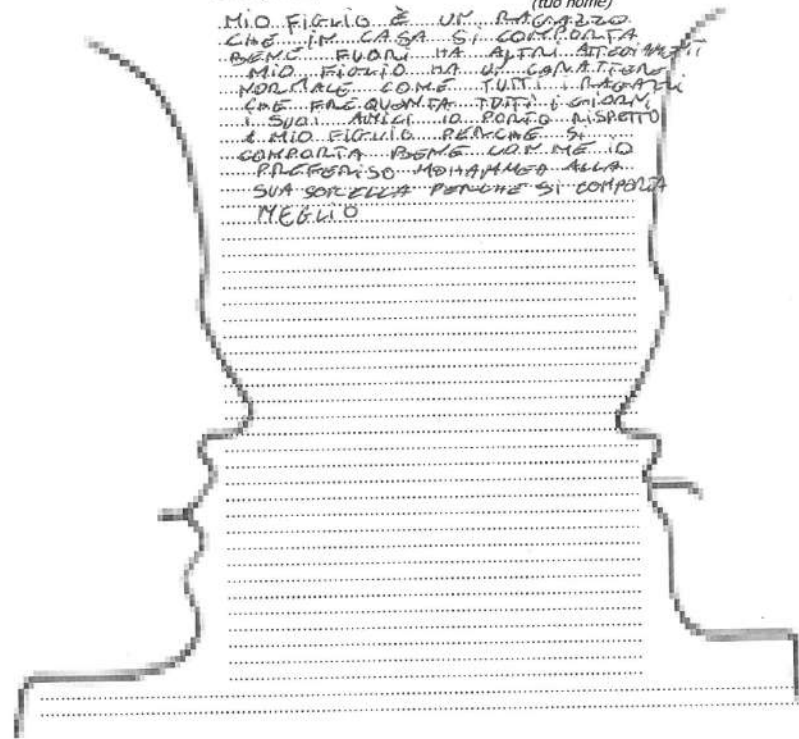 (tuo nome)
MIO FIGLIO È UN RAGAZZO
CHE IN CASA SI COMPORTA
BENE FUORI HA ALTRI ATTEGIAMENTI
MIO FIGLIO HA UN CARATTERE
NORMALE COME TUTTI I RAGAZZI
CHE FREQUONTA TUTTI I GIORNI
I SUOI AMICI IO PORTO RISPETTO
A MIO FIGLIO PERCHE SI
COMPORTA BENE CON ME IO
PREFERISO MOHAMMED ALLA
SUA SORCELLA PERCHE SI COMPORTA
MEGLIO